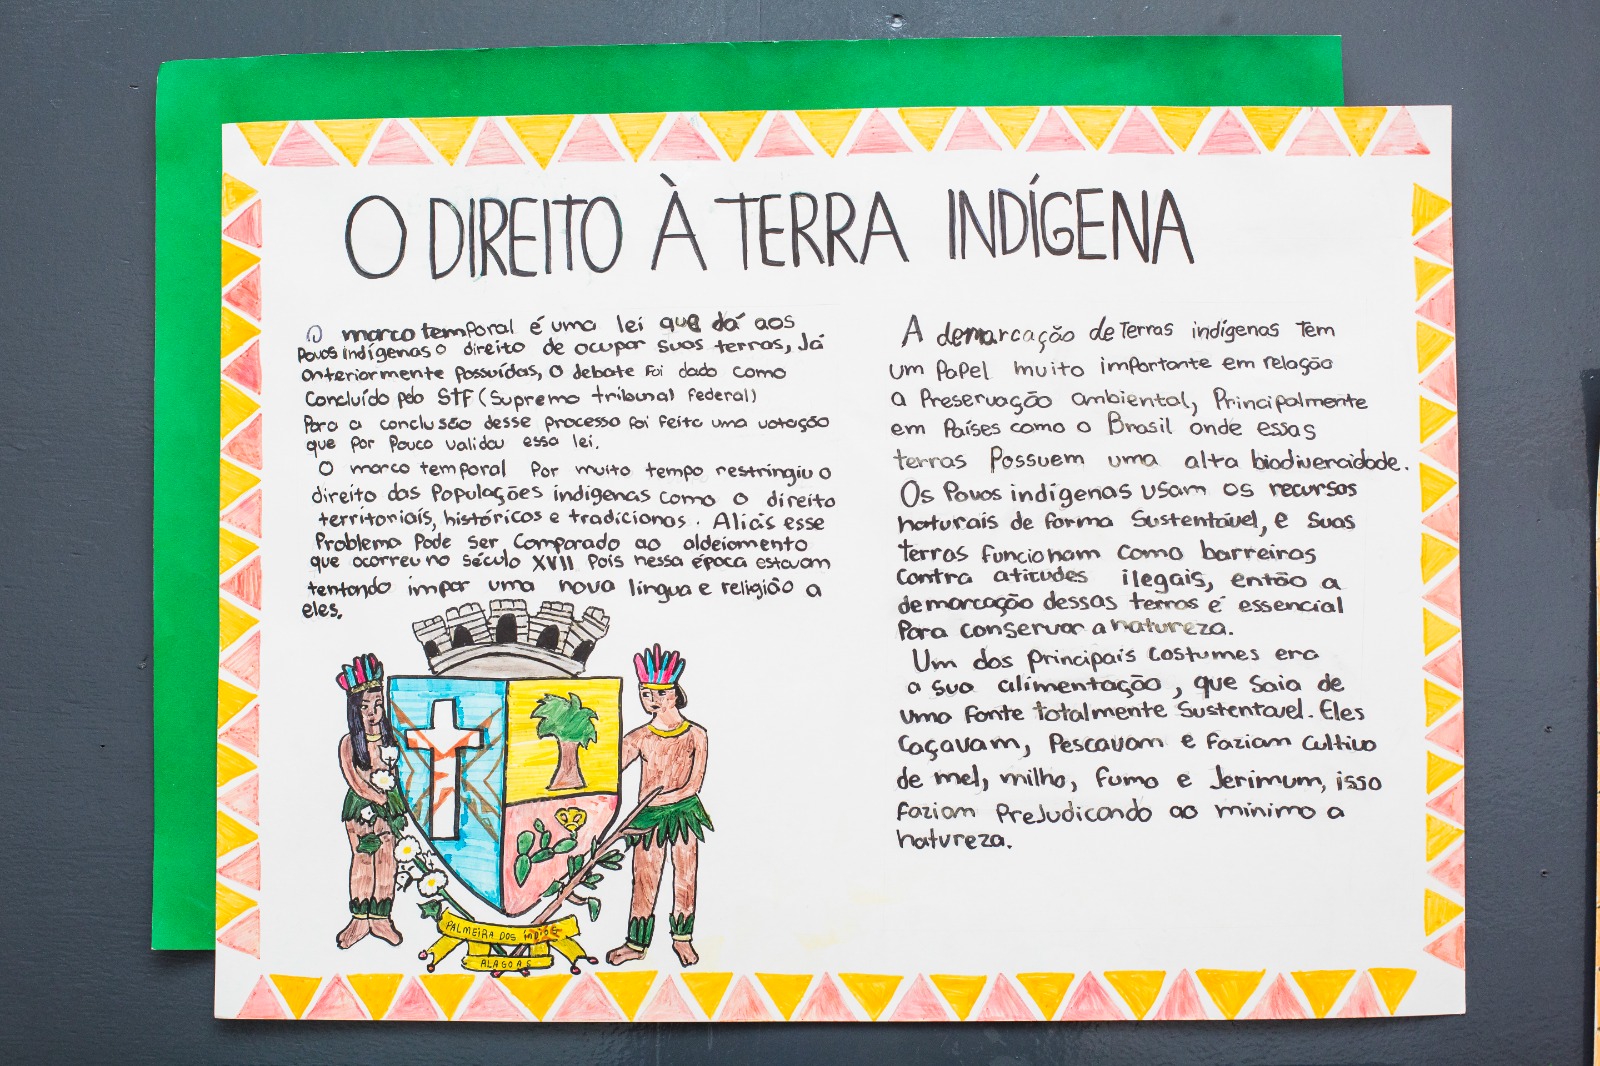 O DIREITO À TERRA INDÍGENA
O marco temporal é uma lei que dá aos
Povos indígenas o direito de ocupar suas terras, Já
anteriormente possuídas, o debate foi dado como
Concluído pelo STF (Supremo tribunal Federal)
Para a conclusão desse processo foi feita uma votação
que por pouco validou essa lei.
O marco temporal por muito tempo restringiu o
direito das Populações indígenas como o direito
territoriais, históricos e tradicionas. Aliás esse
Problema pode ser comparado ao aldeiamento
que ocorreu no século XVII Pois nessa época estavam
tentando impor uma nova língua e religião a
eles.
PALMEIRA DOS ÍNDIOS
ALAGOAS
A demarcação de Terras indígenas Tem
um Papel muito importante em relação
a Preservação ambiental, Principalmente
em Países como o Brasil onde essas
terras Possuem uma alta biodivercidade.
Os Povos indígenas usam os recursos
naturais de forma Sustentável, e Suas
terras funcionam como barreiras
contra atitudes ilegais, então a
demarcação dessas terras é essencial
Para conservar a natureza.
Um dos principais costumes era
a sua alimentação, que saia de
uma fonte totalmente Sustentavel. Eles
Caçavam, Pescavam e faziam cultivo
de mel, milho, fumo e Jerimum, isso
faziam PreJudicando ao mínimo a
natureza.